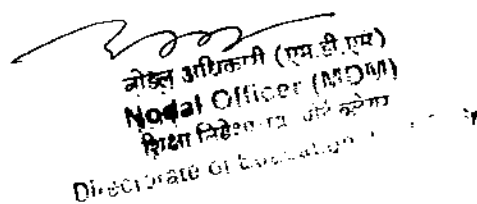 नोडल अधिकारी (एम.डी.एम)
Nodal Officer (MDM)
शिक्षा
Directorate of Education